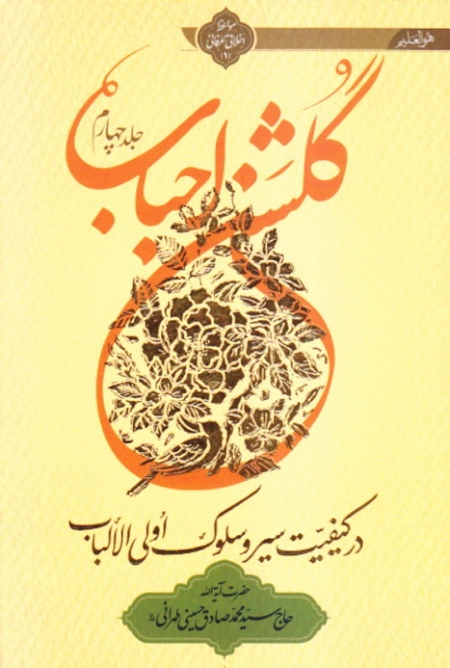 هوالعلیم
مواعظ
اخلاقی عرفانی
گلشن احباب
جلد چهارم
در کیفیّت سیر و سلوک أولی الألباب
حضرت آیة الله
حاج سیّد محمّد صادق حسینی طهرانی